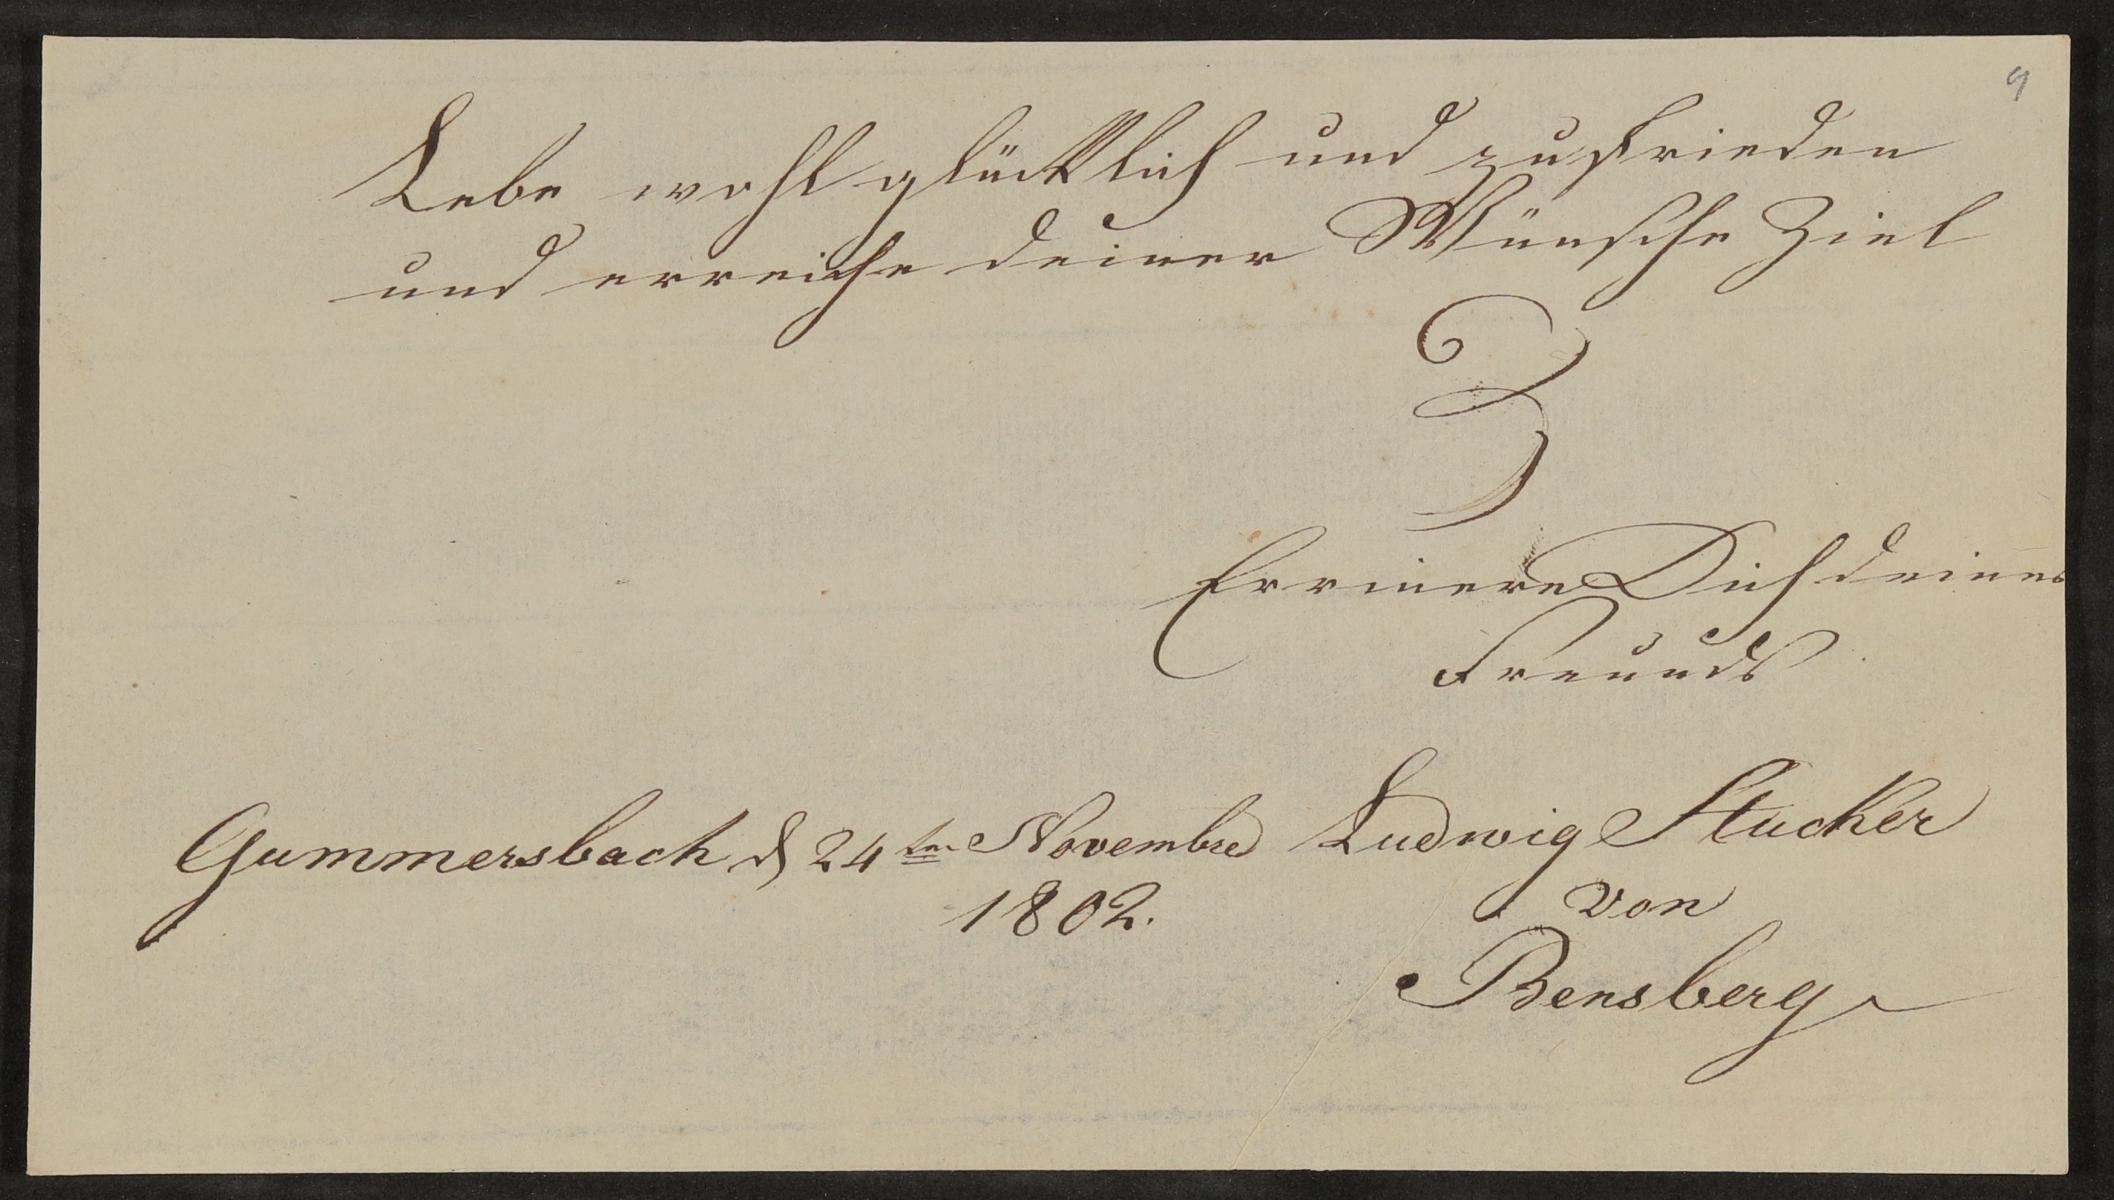 9
Lebe wohl glücklich und zufrieden
und erreiche deiner Wünsche Ziel
Errinere Dich deines
Freunds
Gummersbach d 24ten Novembre Ludwig Stucker
1802. von
Bensberg